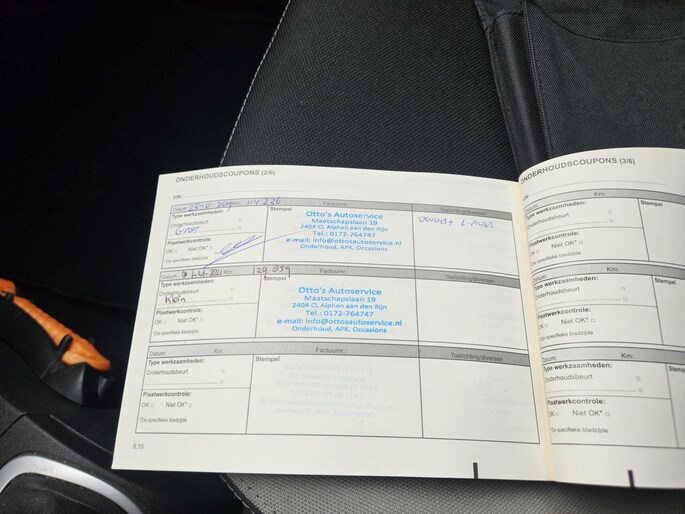 ONDERHOUDSCOUPONS (2/6)
VIN:
Datum: Km: 114 226 Factuurnr.: Toelichting/diversen
Type werkzaamheden: Stempel
Onderhoudsbeurt
Groot
Plaatwerkcontrole:
OK Niet OK*
*Zie specifieke bladzijde
Otto's Autoservice
Maatschapslaan 19
2404 CL Alphen aan den Rijn
Tel.: 0172-764747
e-mail: info@ottosautoservice.nl
Onderhoud, APK, Occasions
Datum: Km: Factuurnr.: Toelichting/diversen
Type werkzaamheden: Stempel
Onderhoudsbeurt
Klein
Plaatwerkcontrole:
OK Niet OK*
*Zie specifieke bladzijde
Otto's Autoservice
Maatschapslaan 19
2404 CL Alphen aan den Rijn
Tel.: 0172-764747
e-mail: info@ottosautoservice.nl
Onderhoud, APK, Occasions
Datum: Km: Factuurnr.: Toelichting/diversen
Type werkzaamheden: Stempel
Onderhoudsbeurt
Plaatwerkcontrole:
OK Niet OK*
*Zie specifieke bladzijde
6.10
ONDERHOUDSCOUPONS (3/6)
VIN:
Datum: Km:
Type werkzaamheden: Stempel
Onderhoudsbeurt
Plaatwerkcontrole:
OK Niet OK*
*Zie specifieke bladzijde
Datum: Km:
Type werkzaamheden: Stempel
Onderhoudsbeurt
Plaatwerkcontrole:
OK Niet OK*
*Zie specifieke bladzijde
Datum: Km:
Type werkzaamheden: Stempel
Onderhoudsbeurt
Plaatwerkcontrole:
OK Niet OK*
*Zie specifieke bladzijde